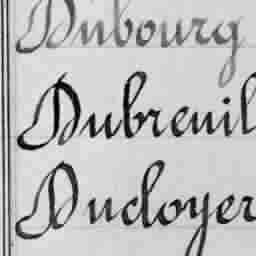 Dubourg
Dubreuil
Ducloyer